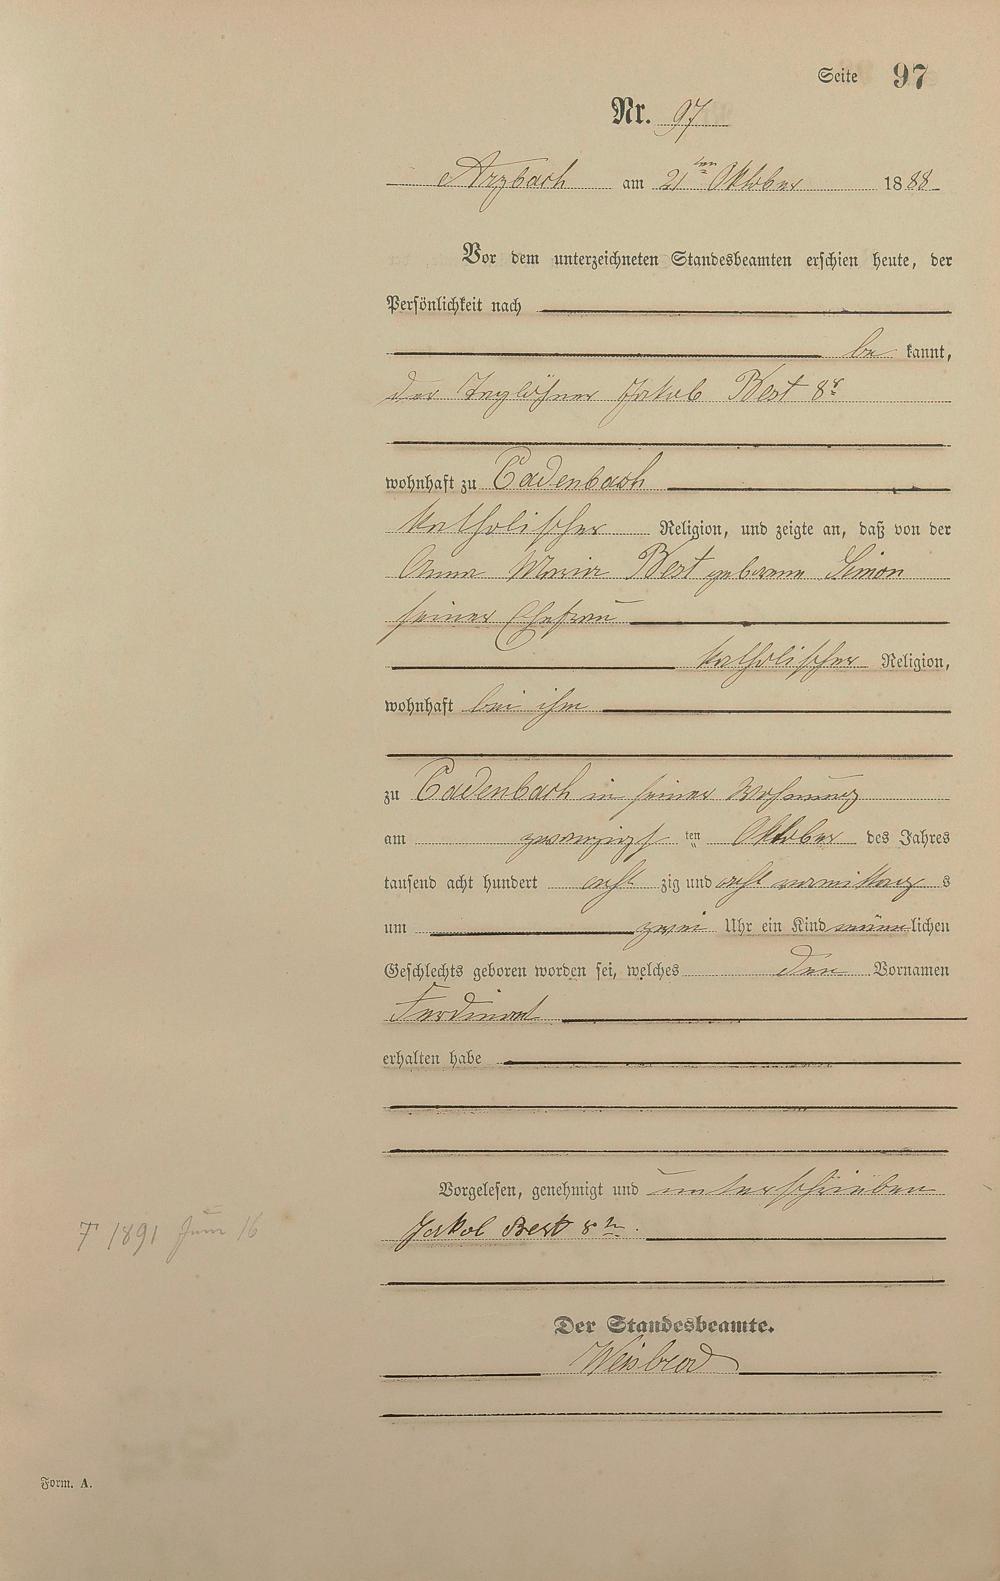 Seite 97
Nr. 97
Arzbach am 21ten Oktober 1888
Vor dem unterzeichneten Standesbeamten erschien heute, der
Persönlichkeit nach
be kannt,
der Taglöhner Jakob Best 8r
wohnhaft zu Cadenbach
katholischer Religion, und zeigte an, daß von der
Anna Maria Best geborene Simon
seiner Ehefrau
katholischer Religion,
wohnhaft bei ihm
zu Cadenbach in seiner Wohnung
am zwanzigsten Oktober des Jahres
tausend acht hundert acht zig und acht vormittags
um zwei Uhr ein Kind männlichen
Geschlechts geboren worden sei, welches den Vornamen
Ferdinant
erhalten habe
Vorgelesen, genehmigt und unterschrieben
Jakob Best 8r.
† 1891 Juni 16
Der Standesbeamte.
Weisbrod
Form. A.